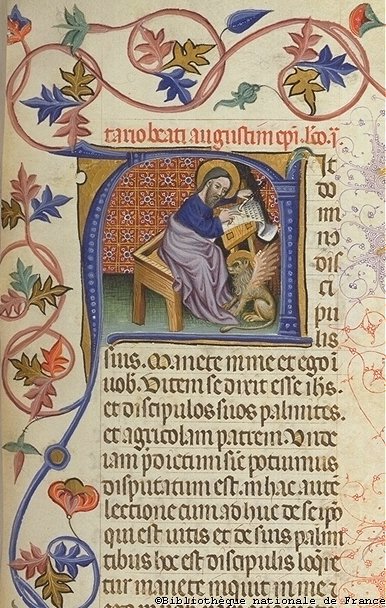 tario beati augustini ep̄i. lc̄o. j̄
Ait
do
mi
nꝰ
dis
ci
pu
lis
suis. Manete in me et ego ī
uob̄. Vitem se dixit esse ih̄s.
et discipulos suos palmites.
et agricolam patrem. Vnde
iam p̄dictum sic̄ potuimus
disputatum est. in hac autē
lectione cum ad huc de se ip̄o
qui est uitis et de suis palmi
tibus hoc est discipulis loq̄re
tur manete inquit in me
©Bibliothèque nationale de France